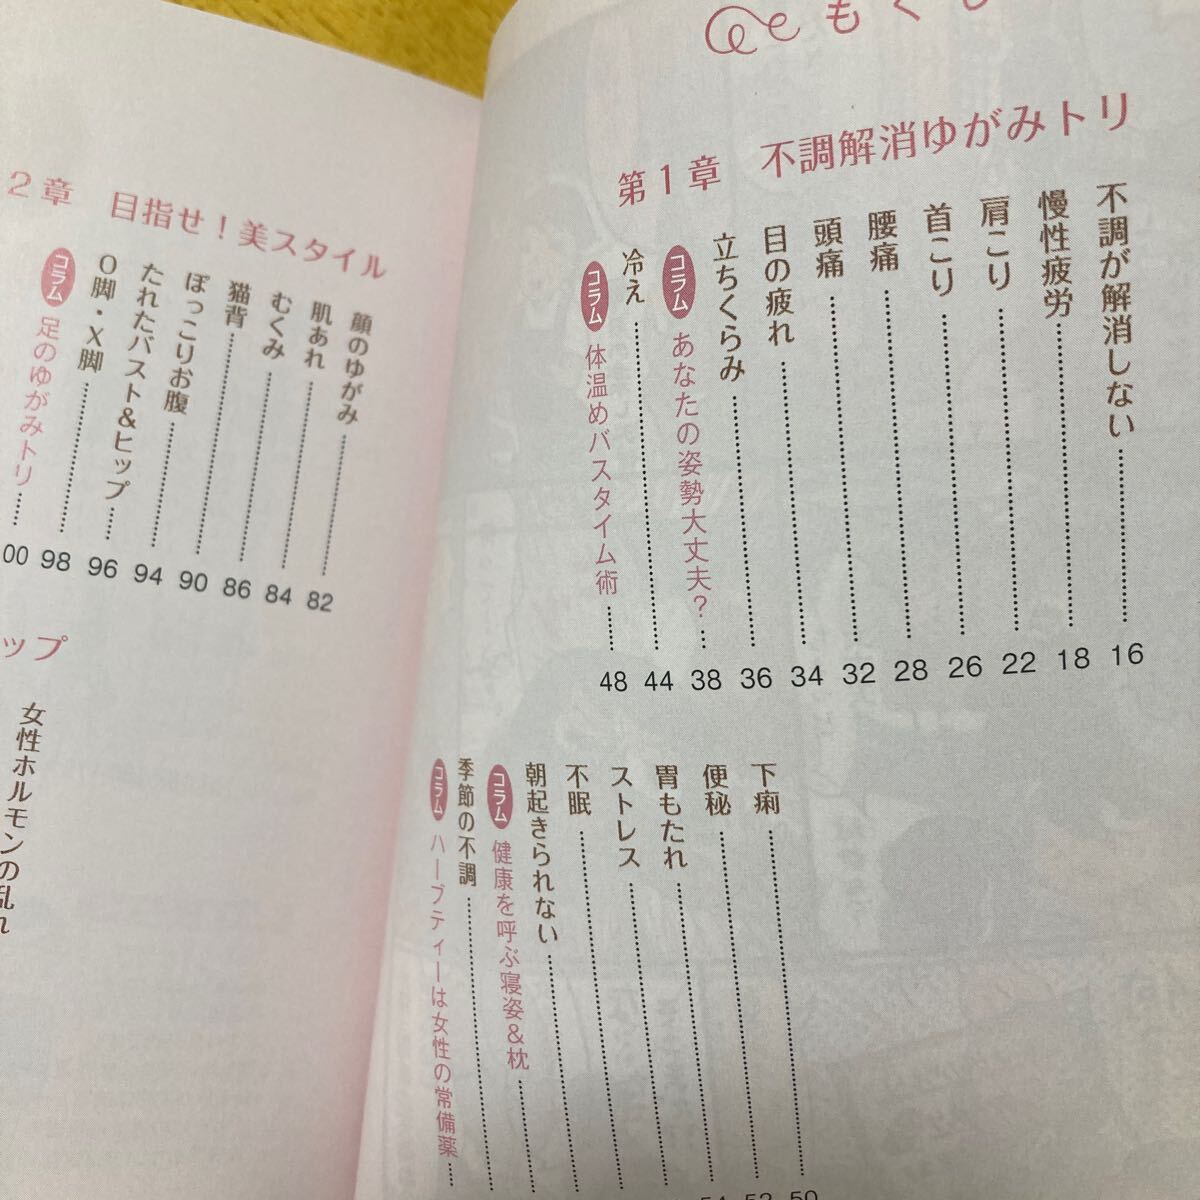 もくじ
第1章　不調解消ゆがみトリ
不調が解消しない 16
慢性疲労 18
肩こり 22
首こり 26
腰痛 28
頭痛 32
目の疲れ 34
立ちくらみ 36
コラム あなたの姿勢大丈夫？ 38
冷え 44
コラム 体温めバスタイム術 48
下痢 50
便秘 52
胃もたれ 54
ストレス
不眠
朝起きられない
コラム 健康を呼ぶ寝姿＆枕
季節の不調
コラム ハーブティーは女性の常備薬
2章　目指せ！美スタイル
顔のゆがみ 82
肌あれ 84
むくみ 86
猫背 90
ぽっこりお腹 94
たれたバスト＆ヒップ 96
O脚・X脚 98
コラム 足のゆがみトリ 00
ップ
女性ホルモンの乱れ